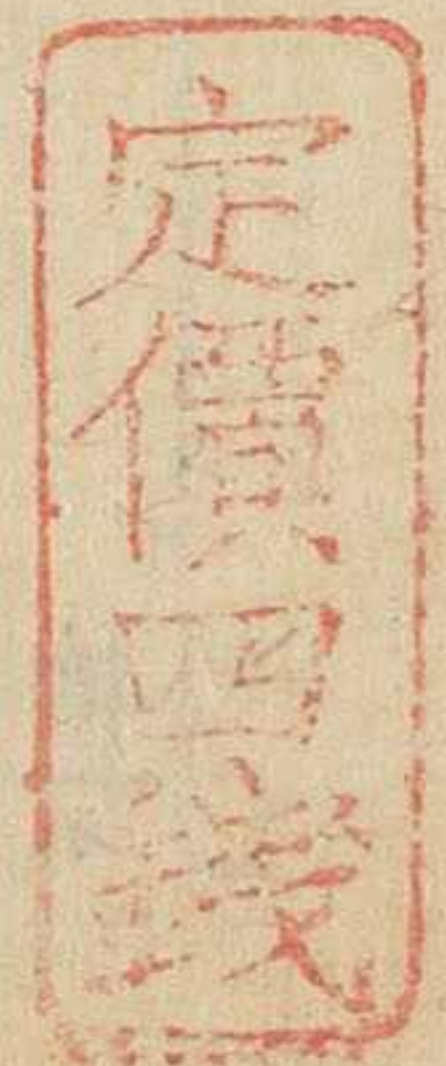 定價四錢